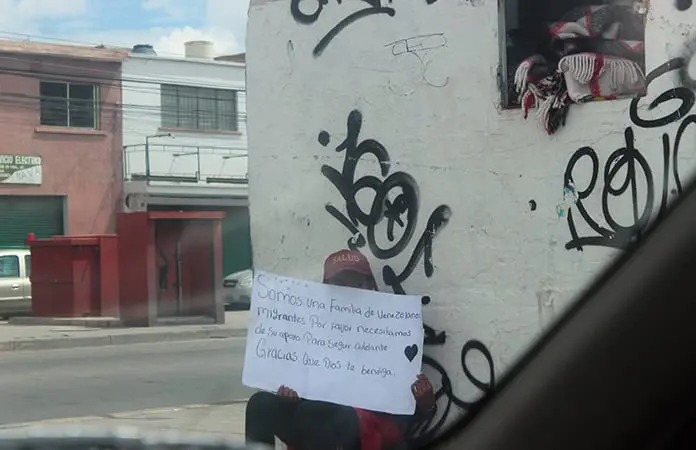 VICIO ELECTRIC
SALUD
Somos una Familia de Venezolanos
migrantes Por favor necesitamos
de su apoyo Para seguir adelante
Gracias. Que Dios le bendiga.